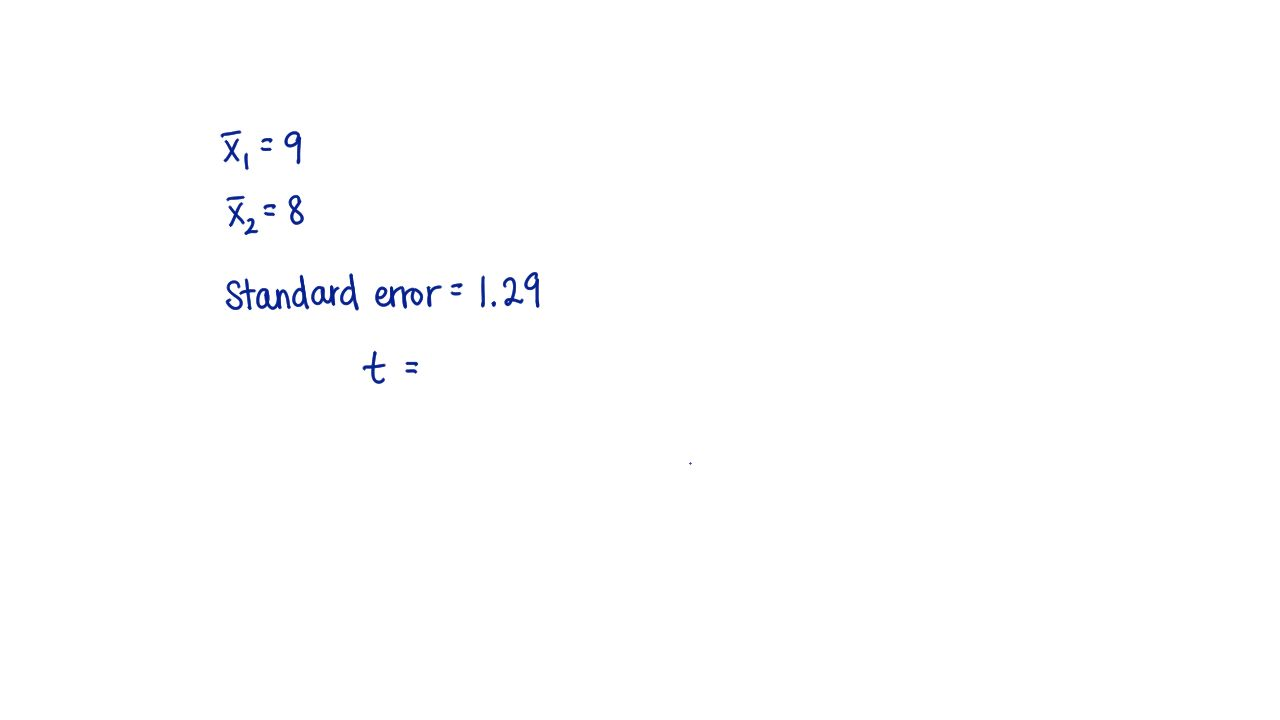 x̄₁ = 9
x̄₂ = 8
Standard error = 1.29
t =